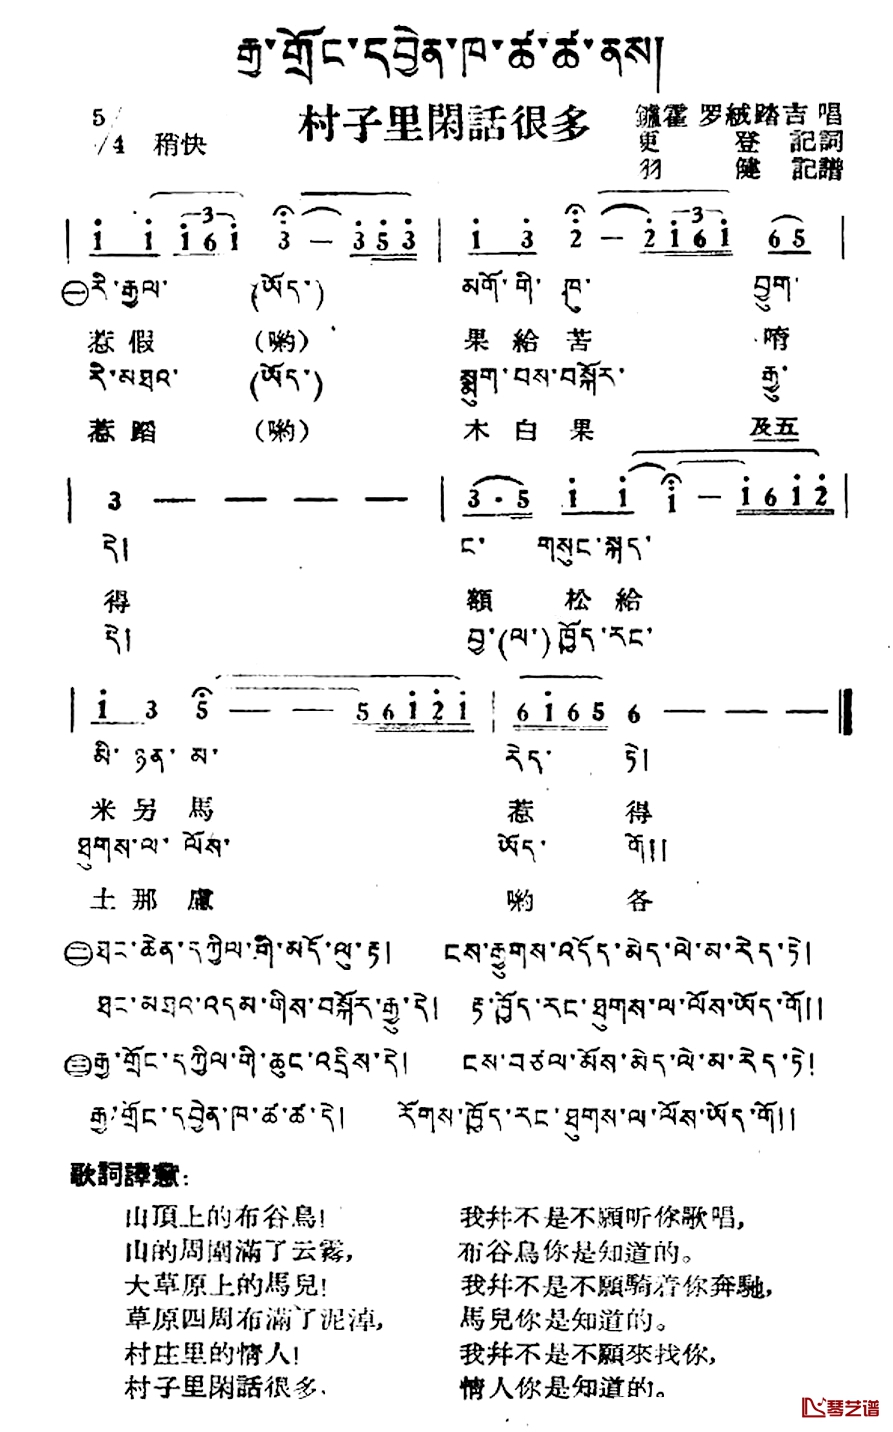 རྒྱ་གྲོང་དབྱེན་ཁ་ཚ་ཚ་ནས།
村子里閑話很多
5/4 稍快
鑪霍 罗絨踏吉 唱
更 登 記詞
羽 健 記譜
| 1 1 1 6 1 3 — 3 5 3 | 1 3 2 — 2 1 6 1 6 5 |
㊀རི་རྒྱལ་ (ཡོད་) མགོ་གི་ཁུ་ བྱུག་
惹假 (喲) 果給苦 唷
རི་མཐའ་ (ཡོད་) སྨུག་བས་བསྐོར་ རྒྱུ་
惹蹈 (喲) 木白果 及五
| 3 — — — — | 3 · 5 1 1 1 — 1 6 1 2 |
དེ། ང་ གསུང་སྐད་
得 額 松給
དེ། བྱ་(ལ་)ཁྱོད་རང་
| 1 3 5 — — 5 6 1 2 1 | 6 1 6 5 6 — — — ‖
མི་ ཉན་ མ་ རེད་ ཏེ།
米另馬 惹 得
ཐུགས་ལ་ ལོས་ ཡོད་ གོ།།
土那慮 喲 各
㊁ཐང་ཆེན་དཀྱིལ་གྱི་མདོ་ལུ་རྟ། ངས་རྒྱུགས་འདོད་མེད་ལེ་མ་རེད་ཏེ།
ཐང་མཐའ་འདམ་གིས་བསྐོར་རྒྱུ་དེ། རྟ་ཁྱོད་རང་ཐུགས་ལ་ལོས་ཡོད་གོ།།
㊂རྒྱ་གྲོང་དཀྱིལ་གི་ཆུང་འདྲིས་དེ། ངས་བཙལ་མོས་མེད་ལེ་མ་རེད་ཏེ།
རྒྱ་གྲོང་དབྱེན་ཁ་ཚ་ཚ་དེ། རོགས་ཁྱོད་རང་ཐུགས་ལ་ལོས་ཡོད་གོ།།
歌詞譯意:
山頂上的布谷鳥! 我幷不是不願听你歌唱,
山的周圍滿了云霧, 布谷鳥你是知道的。
大草原上的馬兒! 我幷不是不願騎着你奔馳,
草原四周布滿了泥淖, 馬兒你是知道的。
村庄里的情人! 我幷不是不願來找你,
村子里閑話很多, 情人你是知道的。
琴艺谱